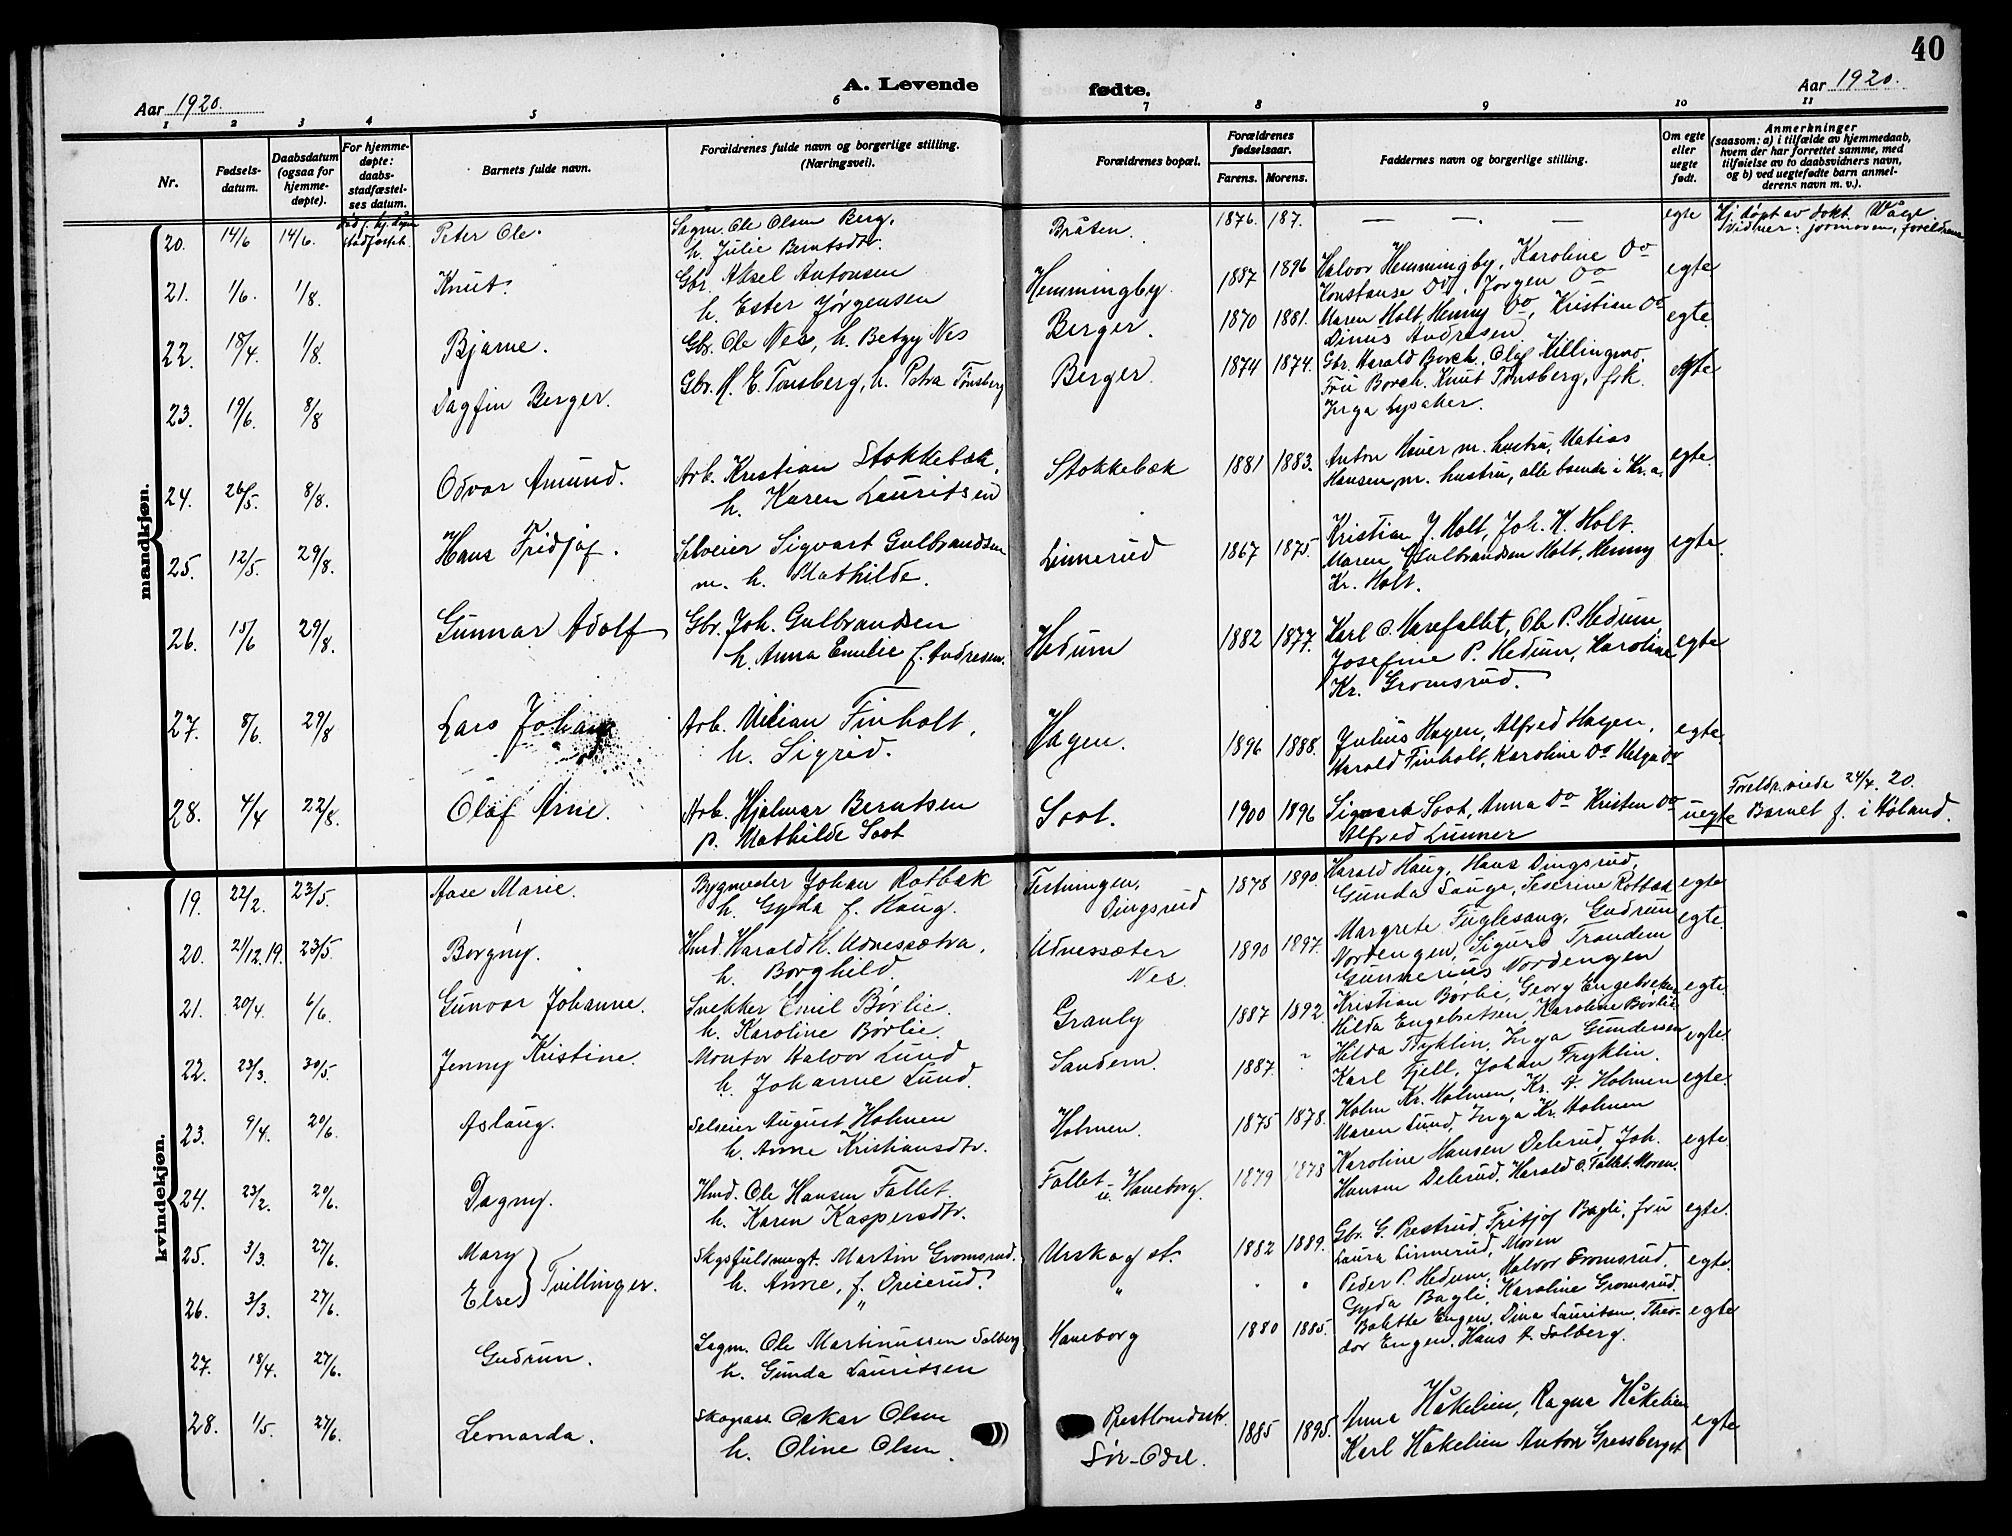 40
A. Levende fødte.
Aar 1920.
Aar 1920.
1 2 3 4 5 6 7 8 9 10 11
Nr.
Fødsels-
datum.
Daabsdatum
(ogsaa for
hjemme-
døpte).
For hjemme-
døpte:
daabs-
stadfæstel-
ses datum.
Barnets fulde navn.
Forældrenes fulde navn og borgerlige stilling.
(Næringsvei).
Forældrenes bopæl.
Forældrenes
fødselsaar.
Farens. Morens.
Faddernes navn og borgerlige stilling.
Om egte
eller
uegte
født.
Anmerkninger
(saasom: a) i tilfælde av hjemmedaab,
hvem der har forrettet samme, med
tilføielse av to daabsvidners navn,
og b) ved uegtefødte barn anmel-
derens navn m. v.).
mandkjøn.
20. 14/6 14/6. Peter Ole. Sagm. Ole Olsen Berg. Bråten. 1876. 187. — — — egte Hj. døpt av dokt. Våge.
h. Julie Berntsdtr. Vidner: jormoren, foreldrene
21. 1/6. 1/8. Knut. Gbr. Aksel Antonsen Hemmingby. 1887 1896 Halvor Hemmingby, Karoline Do egte
h. Ester Jørgensen Konstanse Do, Jørgen Do
22. 18/4. 1/8. Bjarne. Gbr. Ole Nes, h. Betzy Nes Berger. 1870 1881. Maren Holt, Henny Do, Kristian Do egte.
Dinus Andresen
23. 19/6. 8/8 Dagfin Berger. Gbr. H. E. Tønsberg, h. Petra Tønsberg Berger. 1874 1874. Gbr. Harald Borch, Olaf Killingmo, egte
Fru Borch, Knut Tønsberg, frk.
Inga Lysaker.
24. 26/5. 8/8. Odvar Amund. Arb. Kristian Stokkebæk, Stokkebæk 1881 1883. Anton Hauer m. hustru, Matias egte.
h. Karen Lauritsen Hansen m. hustru, alle boende i Kr.a.
25. 12/5. 29/8. Hans Fridjof. Selveier Sigvart Gulbrandsen Linnerud 1867 1875. Kristian J. Holt, Joh. K. Holt. egte.
m. h. Mathilde. Maren Gulbrandsen Holt, Henny
Kr. Holt.
26. 15/6 29/8. Gunnar Adolf Gbr. Joh. Gulbrandsen Hedum 1882 1877. Karl O. Harefallet, Ole P. Hedum, egte
h. Anna Emilie f. Andresen. Josefine P. Hedum, Karoline
Kr. Gromsrud.
27. 8/6. 29/8 Lars Johan Arb. Vilian Finholt, Hagen. 1896 1888. Julius Hagen, Alfred Hagen, egte.
h. Sigrid. Harald Finholt, Karoline Do Helga Do
28. 4/4 22/8. Olaf Arne. Arb. Hjalmar Berntsen Soot. 1900 1896 Sigvart Soot, Anna Do Kristen Do uegte Foreldr. viede 24/4. 20.
p. Mathilde Soot Alfred Lunner Barnet f. i Høland.
kvindekjøn.
19. 22/2. 23/5. Aase Marie. Bygmester Johan Rotbæk Festningen, 1878 1890. Harald Haug, Hans Dingsrud, egte
h. Gyda f. Haug. Dingsrud Gunda Lauge, Severine Rotbæk
20. 21/12.19. 23/5. Borgny. Hmd. Harald H. Udnessætra, Udnessæter 1890 1897. Margrete Fuglesang, Gudrun egte.
h. Borghild Nes. Nordengen, Sigurd Trandem
Gunnerius Nordengen
21. 20/4. 6/6. Gunvor Johanne. Snekker Emil Børlie. Granly 1887 1892. Kristian Børlie, Georg Engebretsen egte.
h. Karoline Børlie. Hilda Engebretsen, Karoline Børlie.
22. 23/3. 30/5. Jenny Kristine. Montør Halvor Lund Sandem. 1887. " Hilda Fryklin, Inga Gundersen egte.
h. Johanne Lund. Karl Fjell, Johan Fryklin.
23. 9/4. 20/6. Aslaug. Selveier August Holmen Holmen. 1875 1878. Holm Kr. Holmen, Kr. A. Holmen egte.
h. Anne Kristiansdtr. Maren Lund, Inga Kr. Holmen
24. 23/2. 20/6. Dagny. Hmd. Ole Hansen Fallet. Fallet 1879 1878 Karoline Hansen Delerud, Joh. egte.
h. Karen Kaspersdtr. u. Haneborg. Hansen Delerud, Harald O. Fallet. Moren.
25. 3/3. 27/6. Mary Tvillinger. Skogsfuldmegt. Martin Gromsrud. Urskog st. 1882 1889. Gbr. G. Prestrud, Fritjof Bagli, fru egte.
h. Anne, f. Dreierud. Laura Linnerud, Moren
26. 3/3. 27/6. Else " " " " Peder P. Hedum, Halvor Gromsrud, egte.
Gyda Bagli, Karoline Gromsrud.
27. 18/4. 27/6. Gudrun. Sagm. Ole Martinussen Solberg Haneborg 1880 1885. Bolette Engen, Dina Lauritsen, Theo- egte
h. Gunda Lauritsen dor Engen, Hans A. Solberg.
28. 1/5. 27/6. Leonarda. Skogsarb. Oskar Olsen 1885 1895. Anna Håkelien, Ragna Håkelien egte
h. Oline Olsen. Sør-Odal. Karl Håkelien Anton Gressberget